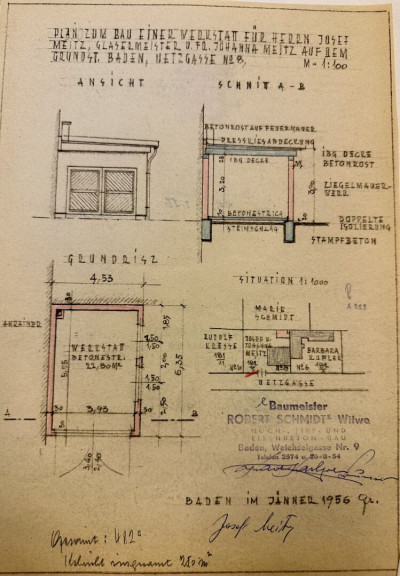 PLAN ZUM BAU EINER WERKSTATT FÜR HERRN JOSEF
MEITZ, GLASERMEISTER U. FR. JOHANNA MEITZ AUF DEM
GRUNDST. BADEN, NETZGASSE No 8,
M - 1:100
ANSICHT
SCHNITT A-B
BETONROST AUF FEUERMAUER
PRESSKIESABDECKUNG
IBG DECKE
IBG DECKE
BETONROST
3,20
ZIEGELMAUER-
WERK
BETONESTRICH
STEINSCHLAG
DOPPELTE
ISOLIERUNG
STAMPFBETON
GRUNDRISZ
4,53
ANRAINER
WERKSTATT
BETONESTR.
1,85
1,50
1,50
2,00
6,35
1,50
1,50
30
3,93
30
A
B
SITUATION 1:1000
MARIE
SCHMIDT
RUDOLF
JOHANNA
MEITZ
BARBARA
NETZGASSE
Baumeister
ROBERT SCHMIDTs Witwe
HOCH-, TIEF- UND
EISENBETON-BAU
Baden, Weichselgasse Nr. 9
Telefon
BADEN IM JÄNNER 1956
Josef Meitz
Gesamt: